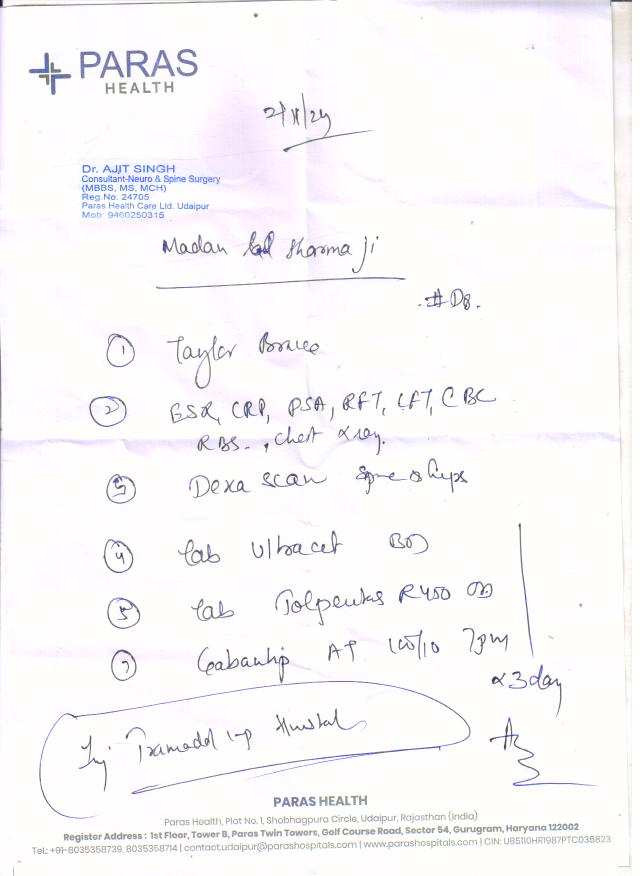 PARAS
HEALTH
2/11/24
Dr. AJIT SINGH
Consultant-Neuro & Spine Surgery
(MBBS, MS, MCH)
Reg.No. 24705
Paras Health Care Ltd. Udaipur
Mob: 9460250315
Madan Lal Sharma Ji
#D8.
1 Taylor Brace
2 ESR, CRP, PSA, RFT, LFT, CBC
RBS., Chest xray.
Dexa scan spine & hips
4 Tab Ultracet BD
5 Tab R 400 OD
Gabantip AT 100/10 7pm
x 3 day
Inj Tramadol
PARAS HEALTH
Paras Health, Plot No. 1, Shobhagpura Circle, Udaipur, Rajasthan (India)
Register Address : 1st Floor, Tower B, Paras Twin Towers, Golf Course Road, Sector 54, Gurugram, Haryana 122002
Tel.: +91-8035358739, 8035358714 | contact.udaipur@parashospitals.com | www.parashospitals.com | CIN: U85110HR1987PTC035823